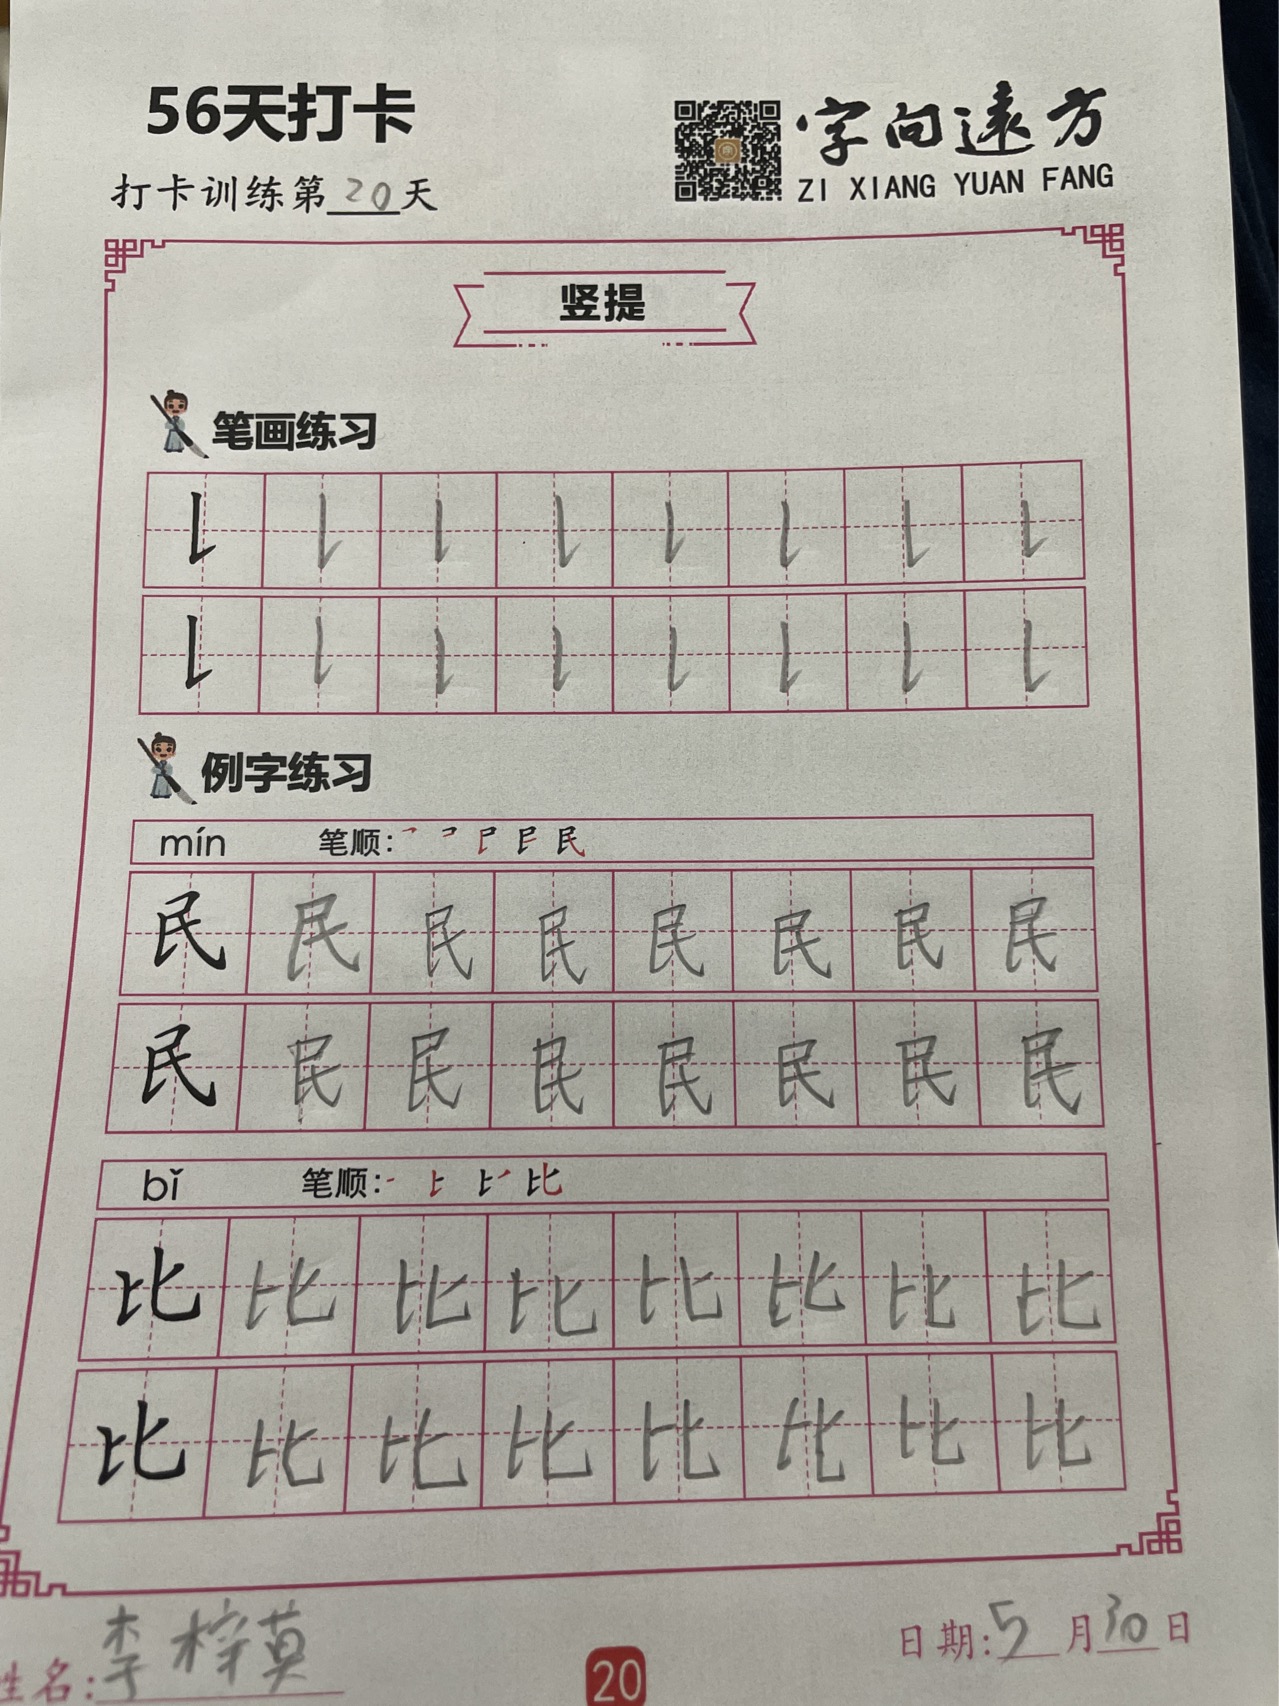 56天打卡
字向遠方
打卡训练第20天
ZI XIANG YUAN FANG
竖提
笔画练习
例字练习
mín 笔顺:
民 民 民 民 民 民 民 民
民 民 民 民 民 民 民 民
bǐ 笔顺:
比 比 比 比 比 比 比 比
比 比 比 比 比 比 比 比
姓名:李梓萸
日期:5月30日
20